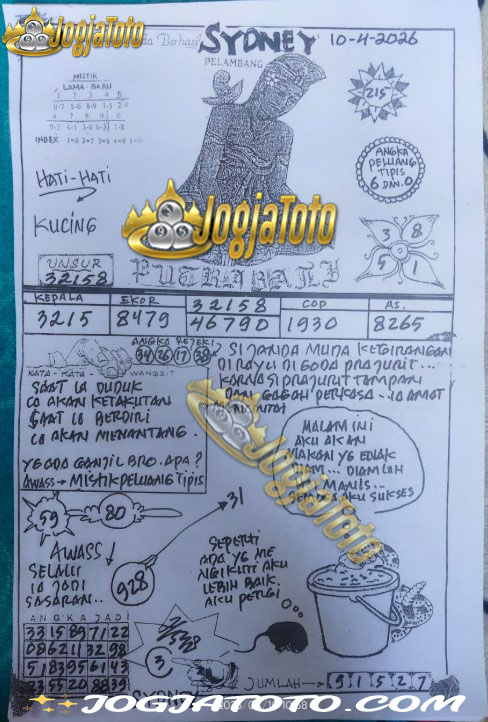 JogjaToto
SYDNEY
10-4-2026
PELAMBANG
MISTIK
LAMA - BARU
215
INDEX
ANGKA
PELUANG
TIPIS
6 DAN 0
HATI-HATI
KUCING
JogjaToto
3 8
5 1
UNSUR
32158
PUTRA BALI
KEPALA EKOR 32158 COP AS.
3215 8479 46790 1930 8265
ANGKA REJEKI
34 26 17 38
SI JANDA MUDA KEGIRANGAN
DI RAYU DI GODA PRAJURIT...
KARNA SI PRAJURIT TAMPAN
DAN GAGAH PERKASA... IA AMAT
KATA - KATA - WANGSIT
SAAT IA DUDUK
IA AKAN KETAKUTAN
SAAT IA BERDIRI
IA AKAN MENANTANG.
YG ADA GANJIL BRO. APA?
AWASS → MISTIK PELUANG TIPIS
MALAM INI
AKU AKAN
MAKAN YG ENAK
DIAM... DIAMLAH
MANIS...
AKU SUKSES
JogjaToto
59 80
31
AWASS!
SELALU
IA JADI
SASARAN..
928
SEPERTI
ADA YG ME
NGIKUTI AKU
LEBIH BAIK.
AKU PERGI
ANGKA JADI
33 15 89 71 22
08 62 11 32 98
51 83 95 61 43
3
JUMLAH
9 1 5 2 7
SYDNEY
JOGJATOTO.COM